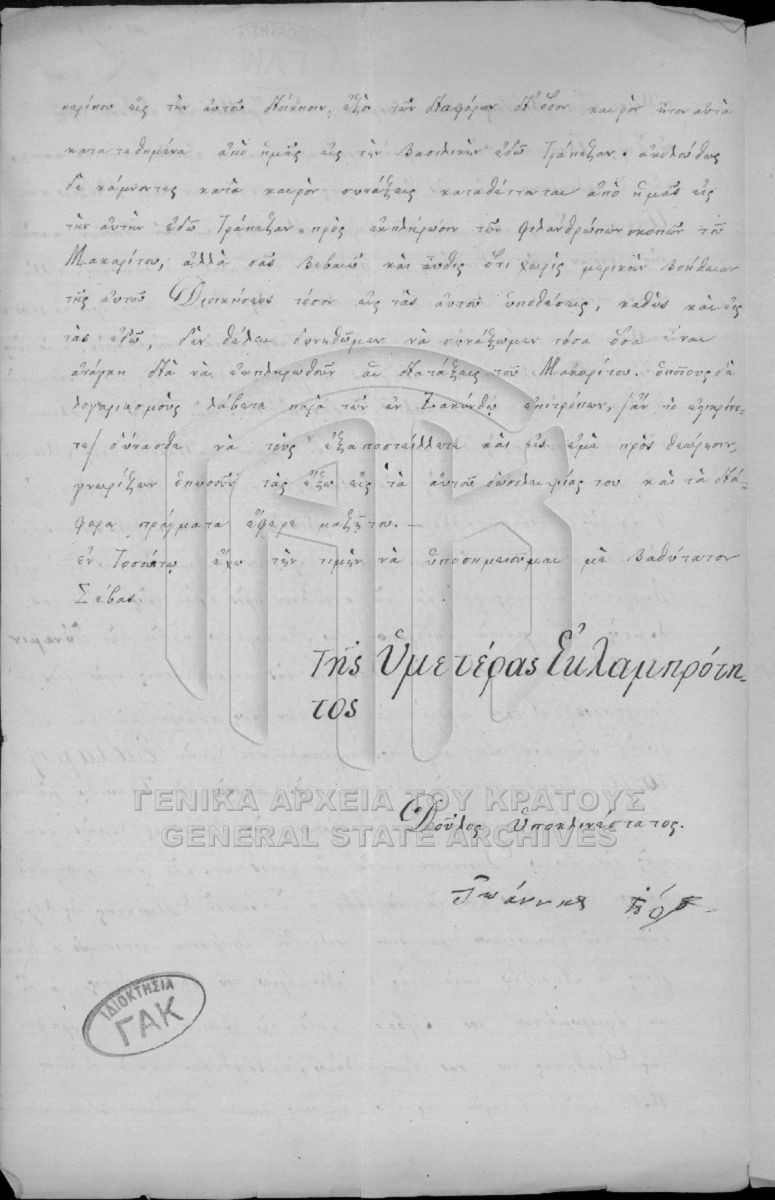 περίπου εἰς τὴν αὐτοῦ διοίκησιν, ἐξὸν τῶν διαφόρων δι' ὅσον καιρὸν ἦτον αὐτὰ
κατατεθημένα ἀπὸ ἡμᾶς εἰς τὴν Βασιλικὴν ἐδῶ Τράπεζαν. ἀκολούθως
δὲ κάμνοντες κατὰ καιρὸν συνάξεις καταθέττονται ἀπὸ ἡμᾶς εἰς
τὴν αὐτὴν ἐδῶ Τράπεζαν πρὸς ἐκπλήρωσιν τῶν φιλανθρώπων σκοπῶν τοῦ
Μακαρίτου, ἀλλὰ σᾶς βεβαιῶ καὶ αὖθις ὅτι χωρὶς μερικὴν βοήθειαν
τῆς αὐτοῦ Διοικήσεως τόσον εἰς τὰς αὐτοῦ ὑποθέσεις, καθὼς καὶ εἰς
τὰς ἐδῶ, δὲν θέλει δυνηθῶμεν νὰ συνάξωμεν τόσα ὅσα εἶναι
ἀνάγκη διὰ νὰ ἐκπληρωθοῦν αἱ διατάξεις τοῦ Μακαρίτου. ὁποίους δὲ
λογαριασμοὺς λάβετε παρὰ τῶν ἐν Ζακύνθῳ ἐπιτρόπων, /ἂν τὸ ἐγκρίνε-
τε/ δύνασθε νὰ τοὺς ἐξαποστείλλετε καὶ εἰς ἐμὲ πρὸς θεώρησιν,
γνωρίζων ὁπωσοῦν τὰς ἕξω εἰς τὰ αὐτοῦ του καὶ τὰ διά-
φορα πράγματα ἔφερε μαζῆ του. —
ἐν Τοσούτῳ ἔχω τὴν τιμὴν νὰ ὑποσημειοῦμαι μὲ βαθύτατον
Σέβας
Τῆς Ὑμετέρας Ἐκλαμπρότη-
τος
Δοῦλος ὑποκλινέστατος.
Ἰωάννης
ΓΕΝΙΚΑ ΑΡΧΕΙΑ ΤΟΥ ΚΡΑΤΟΥΣ
GENERAL STATE ARCHIVES
ΙΔΙΟΚΤΗΣΙΑ
ΓΑΚ